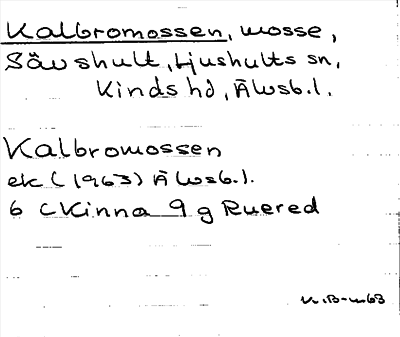 Kalbromossen, mosse,
Sävshult, Ljushults sn,
Kinds hd, Älvsb. l.
Kalbromossen
ek (1963) Älvsb. l.
6 C Kinna 9 g Ruered